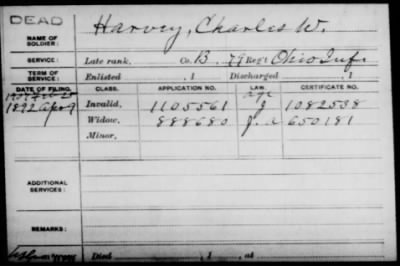 DEAD
NAME OF SOLDIER: Harvey, Charles W.
SERVICE: Late rank, Co. B. 79 Reg't Ohio Inf.
TERM OF SERVICE: Enlisted , 1 Discharged , 1
DATE OF FILING. CLASS. APPLICATION NO. LAW. CERTIFICATE NO.
1907 Feb 25 Invalid, 1105561 J 1082538
1892 Apr 9 Widow, 888680 650181
Minor,
ADDITIONAL SERVICES:
REMARKS:
Died , 1 , at